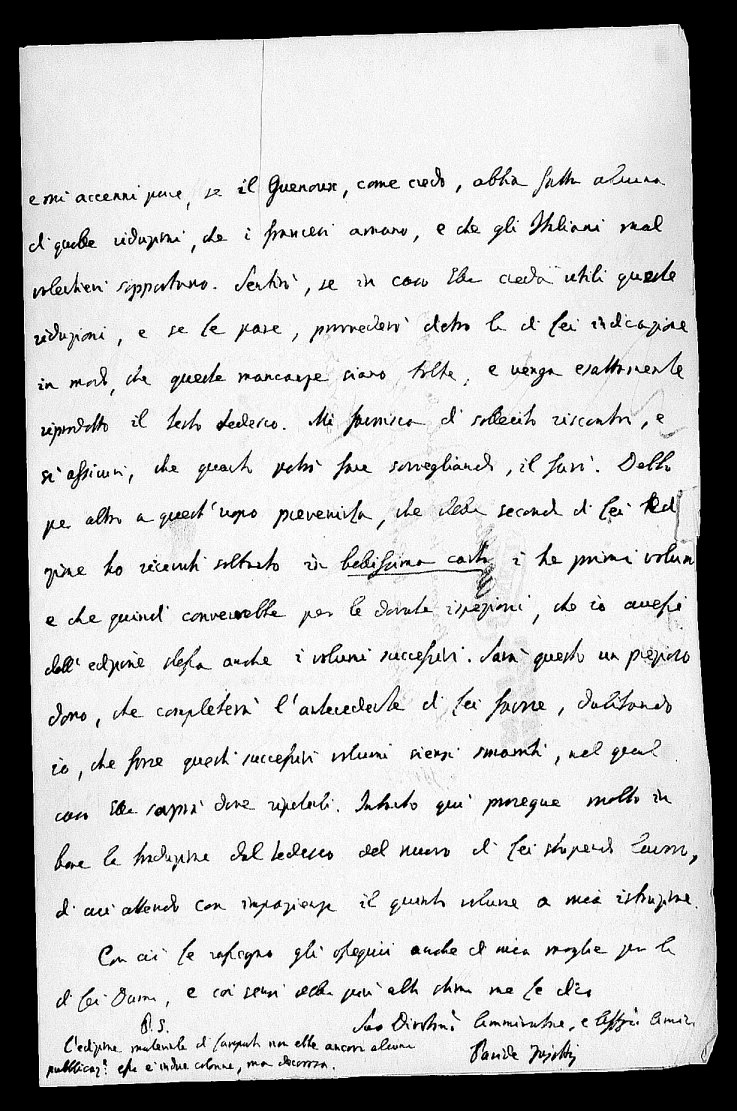 e mi accenni pure, se il Guenoux, come credo, abbia fatta alcuna
di quelle riduzioni, che i francesi amano, e che gli Italiani mal
volentieri sopportano. Sentirò, se in caso Ella creda utili queste
riduzioni, e se le pare, provvederò dietro la di Lei indicazione
in modo, che queste mancanze siano tolte, e venga esattamente
riprodotto il testo tedesco. Mi fornisca di sollecito riscontro, e
si assicuri, che quanto potrò fare sorvegliando, il farò. Debbo
per altro a quest'uopo prevenirla, che della seconda di Lei Ed
izione ho ricevuti soltanto in bellissima carta i tre primi volumi
e che quindi converrebbe per le dovute ispezioni, che io avessi
dell'edizione stessa anche i volumi successivi. Sarà questo un prezioso
dono, che completerà l'antecedente di Lei favore, dubitando
io, che forse questi successivi volumi siensi smarriti, nel qual
caso Ella saprà dove ripeterli. Intanto qui prosegue molto in
bene la traduzione dal tedesco del nuovo di Lei stupendo lavoro,
di cui attendo con impazienza il quinto volume a mia istruzione.
Con ciò le rassegno gli ossequii anche di mia moglie per la
di Lei Dama, e coi sensi della più alta stima me le dico
Suo Divotmo Ammiratore, e
P.S.
L'edizione materiale di non ebbe ancora alcuna
pubblicaze essa è in due colonne, ma decorosa.
Davide